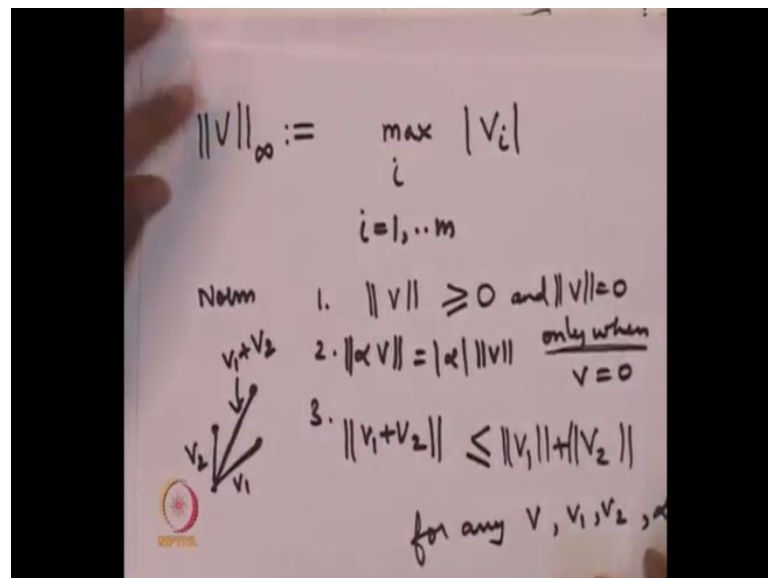 ||V||∞ := max |Vi|
i
i=1,..m
Norm 1. ||V|| ≥ 0 and ||V||=0
only when
V=0
2. ||αV|| = |α| ||V||
3. ||V1+V2|| ≤ ||V1||+||V2||
V1+V2
V2
V1
for any V, V1, V2, α
NPTEL